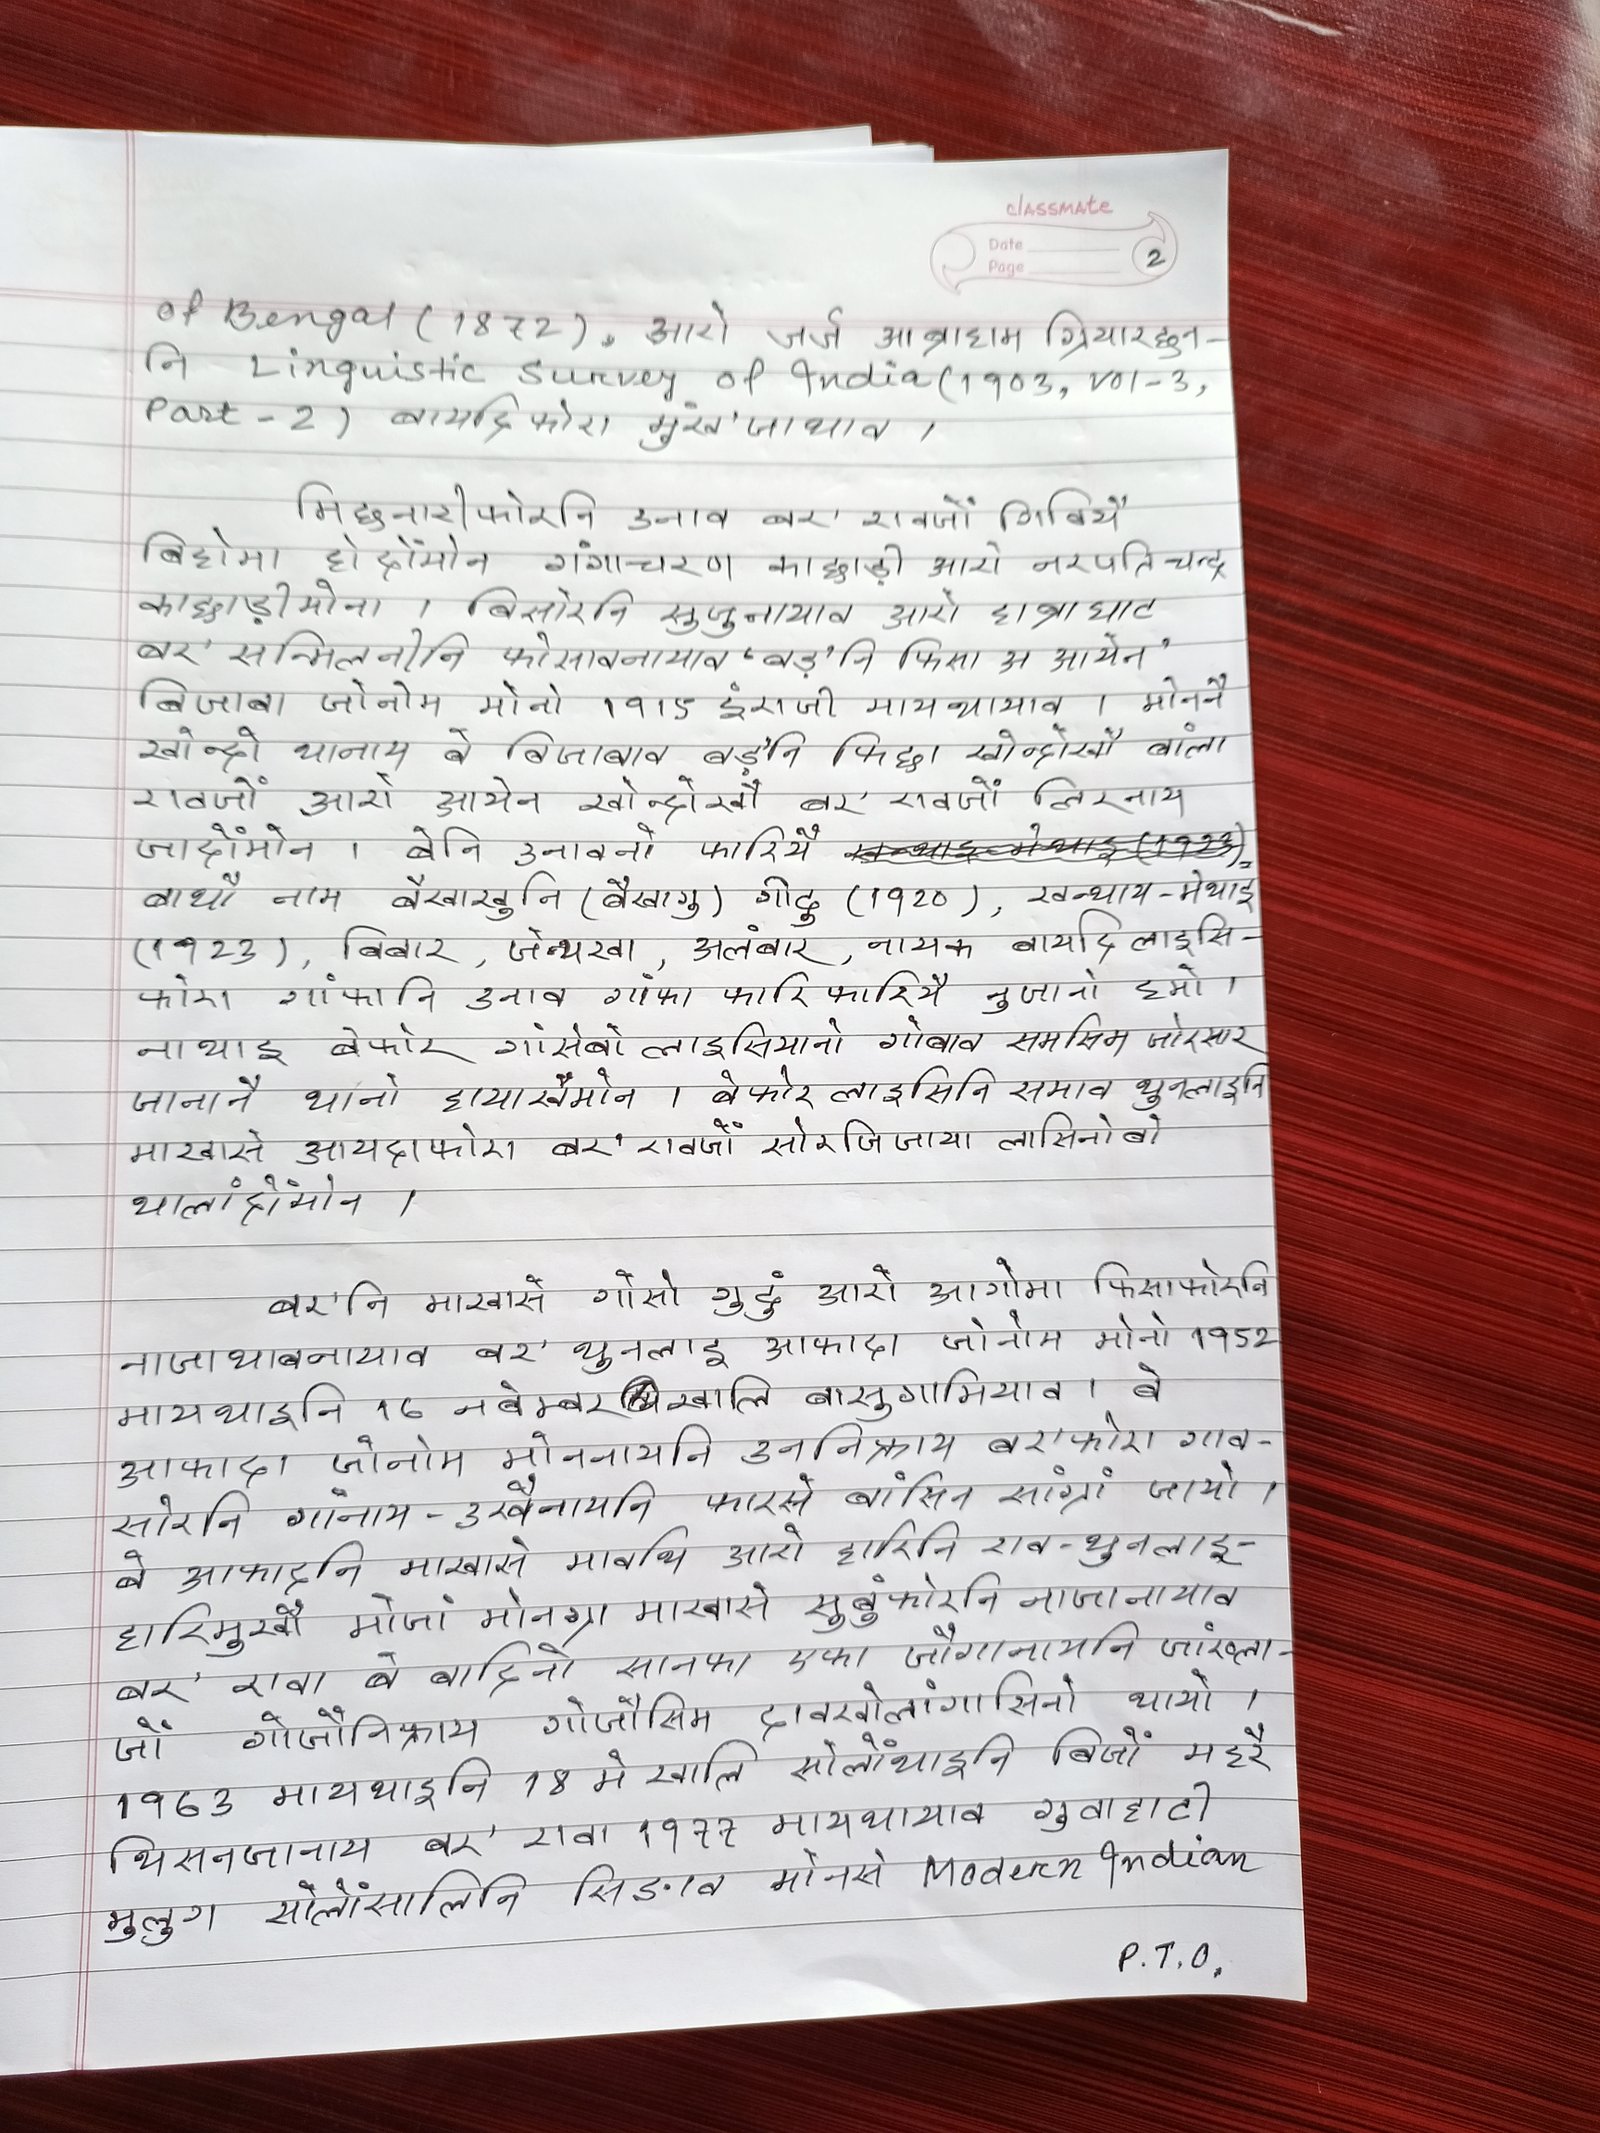 classmate
Date
Page
2
of Bengal (1872). आरो जर्ज आब्राहाम ग्रियारछन-
नि Linguistic Survey of India (1903, vol-3,
Part-2) बायदिफोरा मुंख'जाथाव ।
मिछनारीफोरनि उनाव बर' रावजों गिबियै
बिहोमा होदोंमोन गंगाचरण काछाड़ी आरो नरपतिचन्द्र
काछाड़ीमोना । बिसोरनि सुजुनायाव आरो हाब्राघाट
बर' सन्मिलनीनि फोसावनायाव 'बड़'नि फिसा अ आयेन'
बिजाबा जोनोम मोनो 1915 इंराजी मायथायाव । मोननै
खोन्दो थानाय बे बिजाबाव बड़'नि फिछा खोन्दोखौ बांला
रावजों आरो आयेन खोन्दोखौ बर' रावजों लिरनाय
जादोंमोन । बेनि उनावनो फारियै
बाथौ नाम बैखाखुनि (बैखागु) गीदु (1920), खन्थाय-मेथाइ
(1923), बिबार, जेन्थखा, अलंबार, नायक बायदि लाइसि-
फोरा गांफानि उनाव गांफा फारि फारियै नुजानो हमो ।
नाथाइ बेफोर गांसेबो लाइसियानो गोबाव समसिम जोरसार
जानानै थानो हायाखैमोन । बेफोर लाइसिनि समाव थुनलाइनि
माखासे आयदाफोरा बर' रावजों सोरजिजाया लासिनोबो
थालांदोंमोन ।
बर'नि माखासे गोसो गुदुं आरो आगोमा फिसाफोरनि
नाजाथाबनायाव बर' थुनलाइ आफादा जोनोम मोनो 1952
मायथाइनि 16 नबेम्बर खालि बासुगामियाव । बे
आफादा जोनोम मोननायनि उननिफ्राय बर'फोरा गाव-
सोरनि गोनाय-उखैनायनि फारसे बांसिन सांग्रां जायो ।
बे आफादनि माखासे मावथि आरो हारिनि राव-थुनलाइ-
हारिमुखौ मोजां मोनग्रा माखासे सुबुंफोरनि नाजानायाव
बर' रावा बे बादिनो सानफा एफा जौगानायनि जांख्ला-
जों गोजौनिफ्राय गोजौसिम दावखोलांगासिनो थायो ।
1963 मायथाइनि 18 मे खालि सोलोंथाइनि बिजों महरै
थिसनजानाय बर' रावा 1977 मायथायाव गुवाहाटी
मुलुग सोलोंसालिनि सिङाव मोनसे Modern Indian
P.T.O.